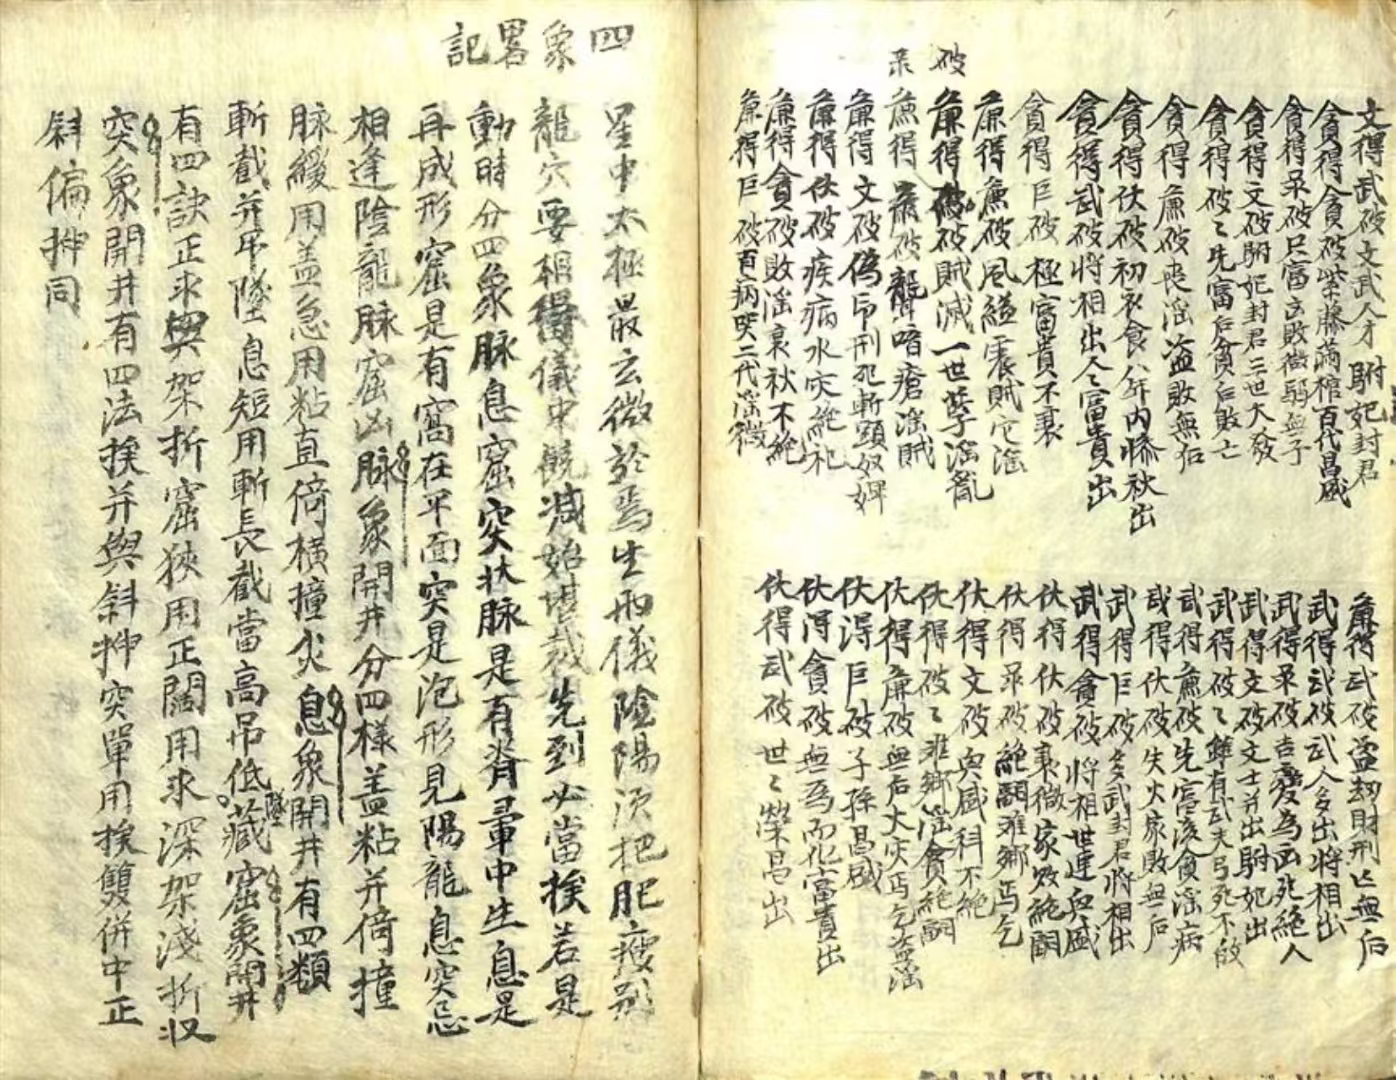 文得武破文武人才駙妃封君
貪得貪破紫藤滿棺百代昌盛
貪得彔破凡富亡敗微弱無子
貪得文破駙妃封君三世大發
貪得破〻先富后貪后敗亡
貪得廉破喪淫盗敗無后
貪得伏破初衣食八年内慘秋出
貪得武破將相出人〻富貴出
貪得巨破極富貴不衰
廉得廉破風縊震賊宅淫
廉得破破賊滅一世孽淫亂
廉得彔破聾喑瘡淫賊
廉得文破偽印刑犯斬頭奴婢
廉得伏破疾病水灾絶祀
廉得貪破敗淫衰秋不絶
廉得巨破百病哭二代淫微
破
彔
廉得武破盗劫財刑亡無后
武得武破武人多出將相出
武得彔破吉憂為凶死絶人
武得文破文士并出駙妃出
武得破〻鮮有武夫弓死不啟
武得廉破先富後貪淫病
武得伏破失火家敗無后
武得巨破多武封君將相出
武得貪破將相世連血盛
伏得伏破衰微家敗絶嗣
伏得彔破絶嗣離鄉丐乞
伏得文破與盛科不絶
伏得破〻離鄉淫貪絶嗣
伏得廉破無后火灾丐乞盗淫
伏得巨破子孫昌盛
伏得貪破無為而化富貴出
伏得武破世〻榮昌出
四象畧記
星中太極最玄微於焉生兩儀陰陽須把肥瘦别
龍穴要相得儀中饒減始堪裁先到必當挨若是
動時分四象脉息窟突狀脉是有脊暈中生息是
再成形窟是有窩在平面突是泡形見陽龍息突忌
相逢陰龍脉窟凶脉象開井分四樣盖粘并倚撞
脉緩用盖急用粘直倚横撞炎息象開井有四類
斬截并吊墜息短用斬長截當高吊低墜藏窟象開井
有四訣正求與架折窟狹用正闊用求深架淺折収
突象開井有四法挨并與斜抻突單用挨雙併中正
斜偏抻同